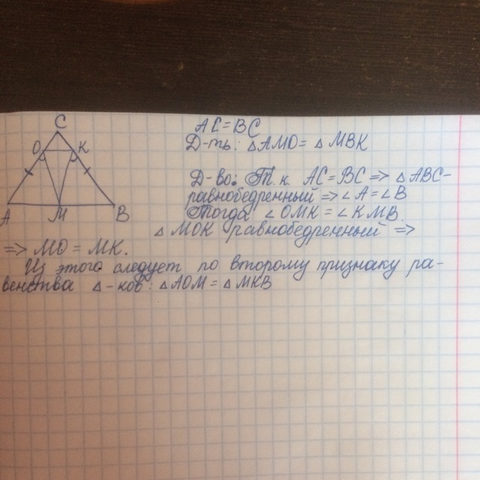 C
O K
A M B
AC=BC
Д-ть: △AMO=△MBK
Д-во: Т.к. AC=BC => △ABC-
равнобедренный => ∠A=∠B
Тогда ∠OMK=∠KMB.
△MOK равнобедренный =>
=> MO=MK.
Из этого следует по второму признаку ра-
венства △-ков: △AOM=△MKB